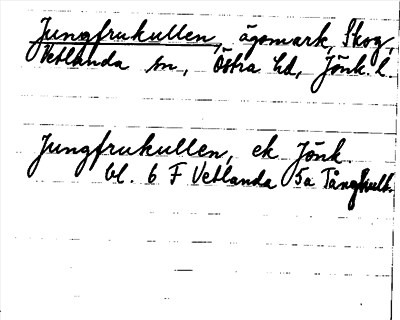 Jungfrukullen, ägomark, Skog,
Vetlanda sn, Östra hd, Jönk. l.
Jungfrukullen, ek Jönk.
bl. 6 F Vetlanda 5a Tånghult.